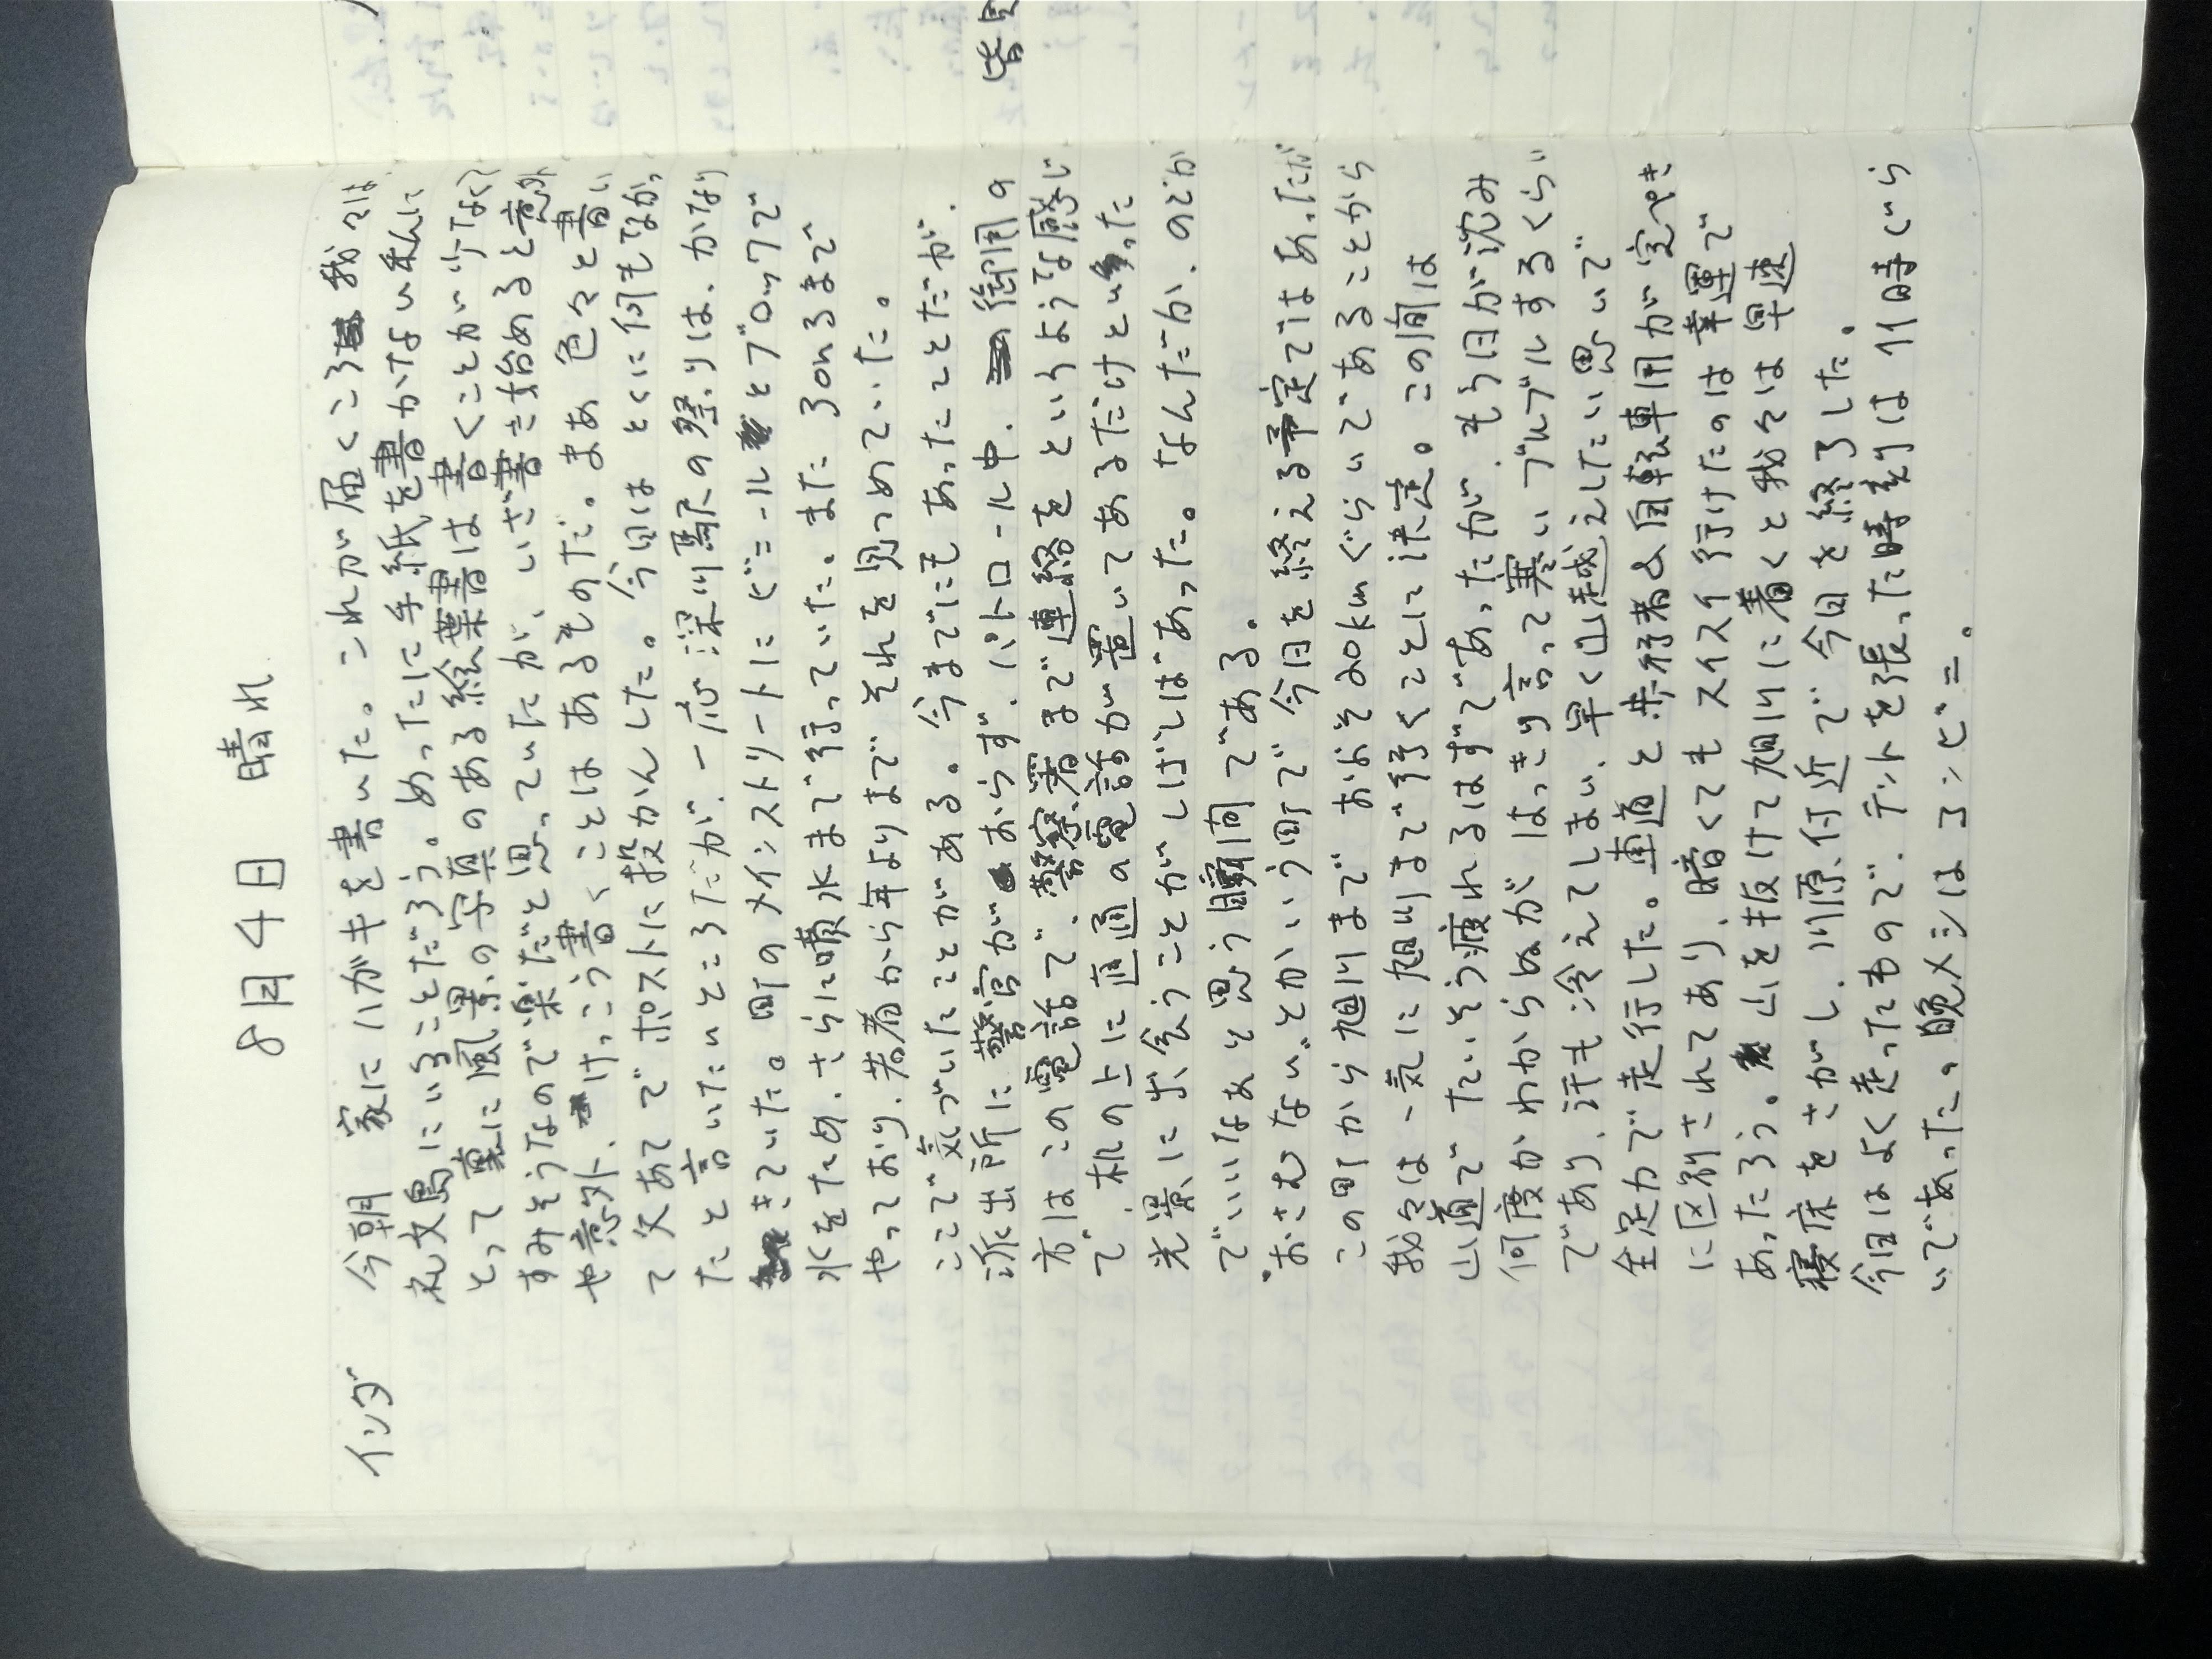 8月4日 晴れ
インダ 今朝 家にハガキを書いた。これが届くころ 我々は
礼文島にいることだろう。めったに手紙を書かない私に
とって裏に風景の写真のある絵葉書は書くことが少なく
すみそうなので楽だと思っていたが、いざ書き始めると意外
や意外、けっこう書くことはあるものだ。まあ色々と書い
て父あてでポストに投かんした。今日は とくに何もなかっ
たと言いたいところだが、一応 深川駅の祭りは、かなり
きていた。町のメインストリートにビニールとブロックで
水をため、さらに噴水まで行っていた。また 30mるまで
やっており、若者から年よりまで それを見つめていた。
ここで気づいたことがある。今までにもあったことだが、
派出所に警官がおらず、パトロール中、御用の
方はこの電話で、警察署まで連絡をというような感じ
で、机の上に直通の電話が置いてあるだけといった
光景に出会うことがしばしばあった。なんだか、のどか
でいいなあと思う瞬間である。
"おさむない"とかいう町で 今日を終える予定ではあったが
この町から旭川まで およそ20kmぐらいであることから
我々は一気に旭川まで行くことに決定。この間は
山道で たいそう疲れるはずであったが、もう日が沈み
何度かわからぬが はっきり言って寒い、ブルブルするくらい
であり、汗も冷えてしまい、早く山越えしたい思いで
全足力で走行した。車道と歩行者&自転車用が完ぺき
に区別されてあり、暗くてもスイスイ行けたのは幸運で
あったろう。山を抜けて旭川に着くと我々は早速
寝床をさがし、川原付近で今日を終了した。
今日はよく走ったもので、テントを張った時刻は11時ぐら
いであった。晩メシはコンビニ。
皆